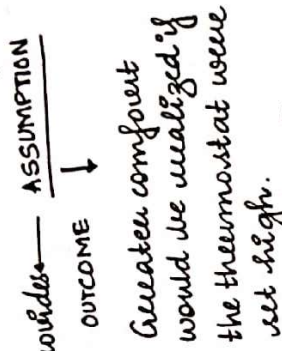 ASSUMPTION
OUTCOME
Greater comfort
would be realized if
the thermostat were
set high.